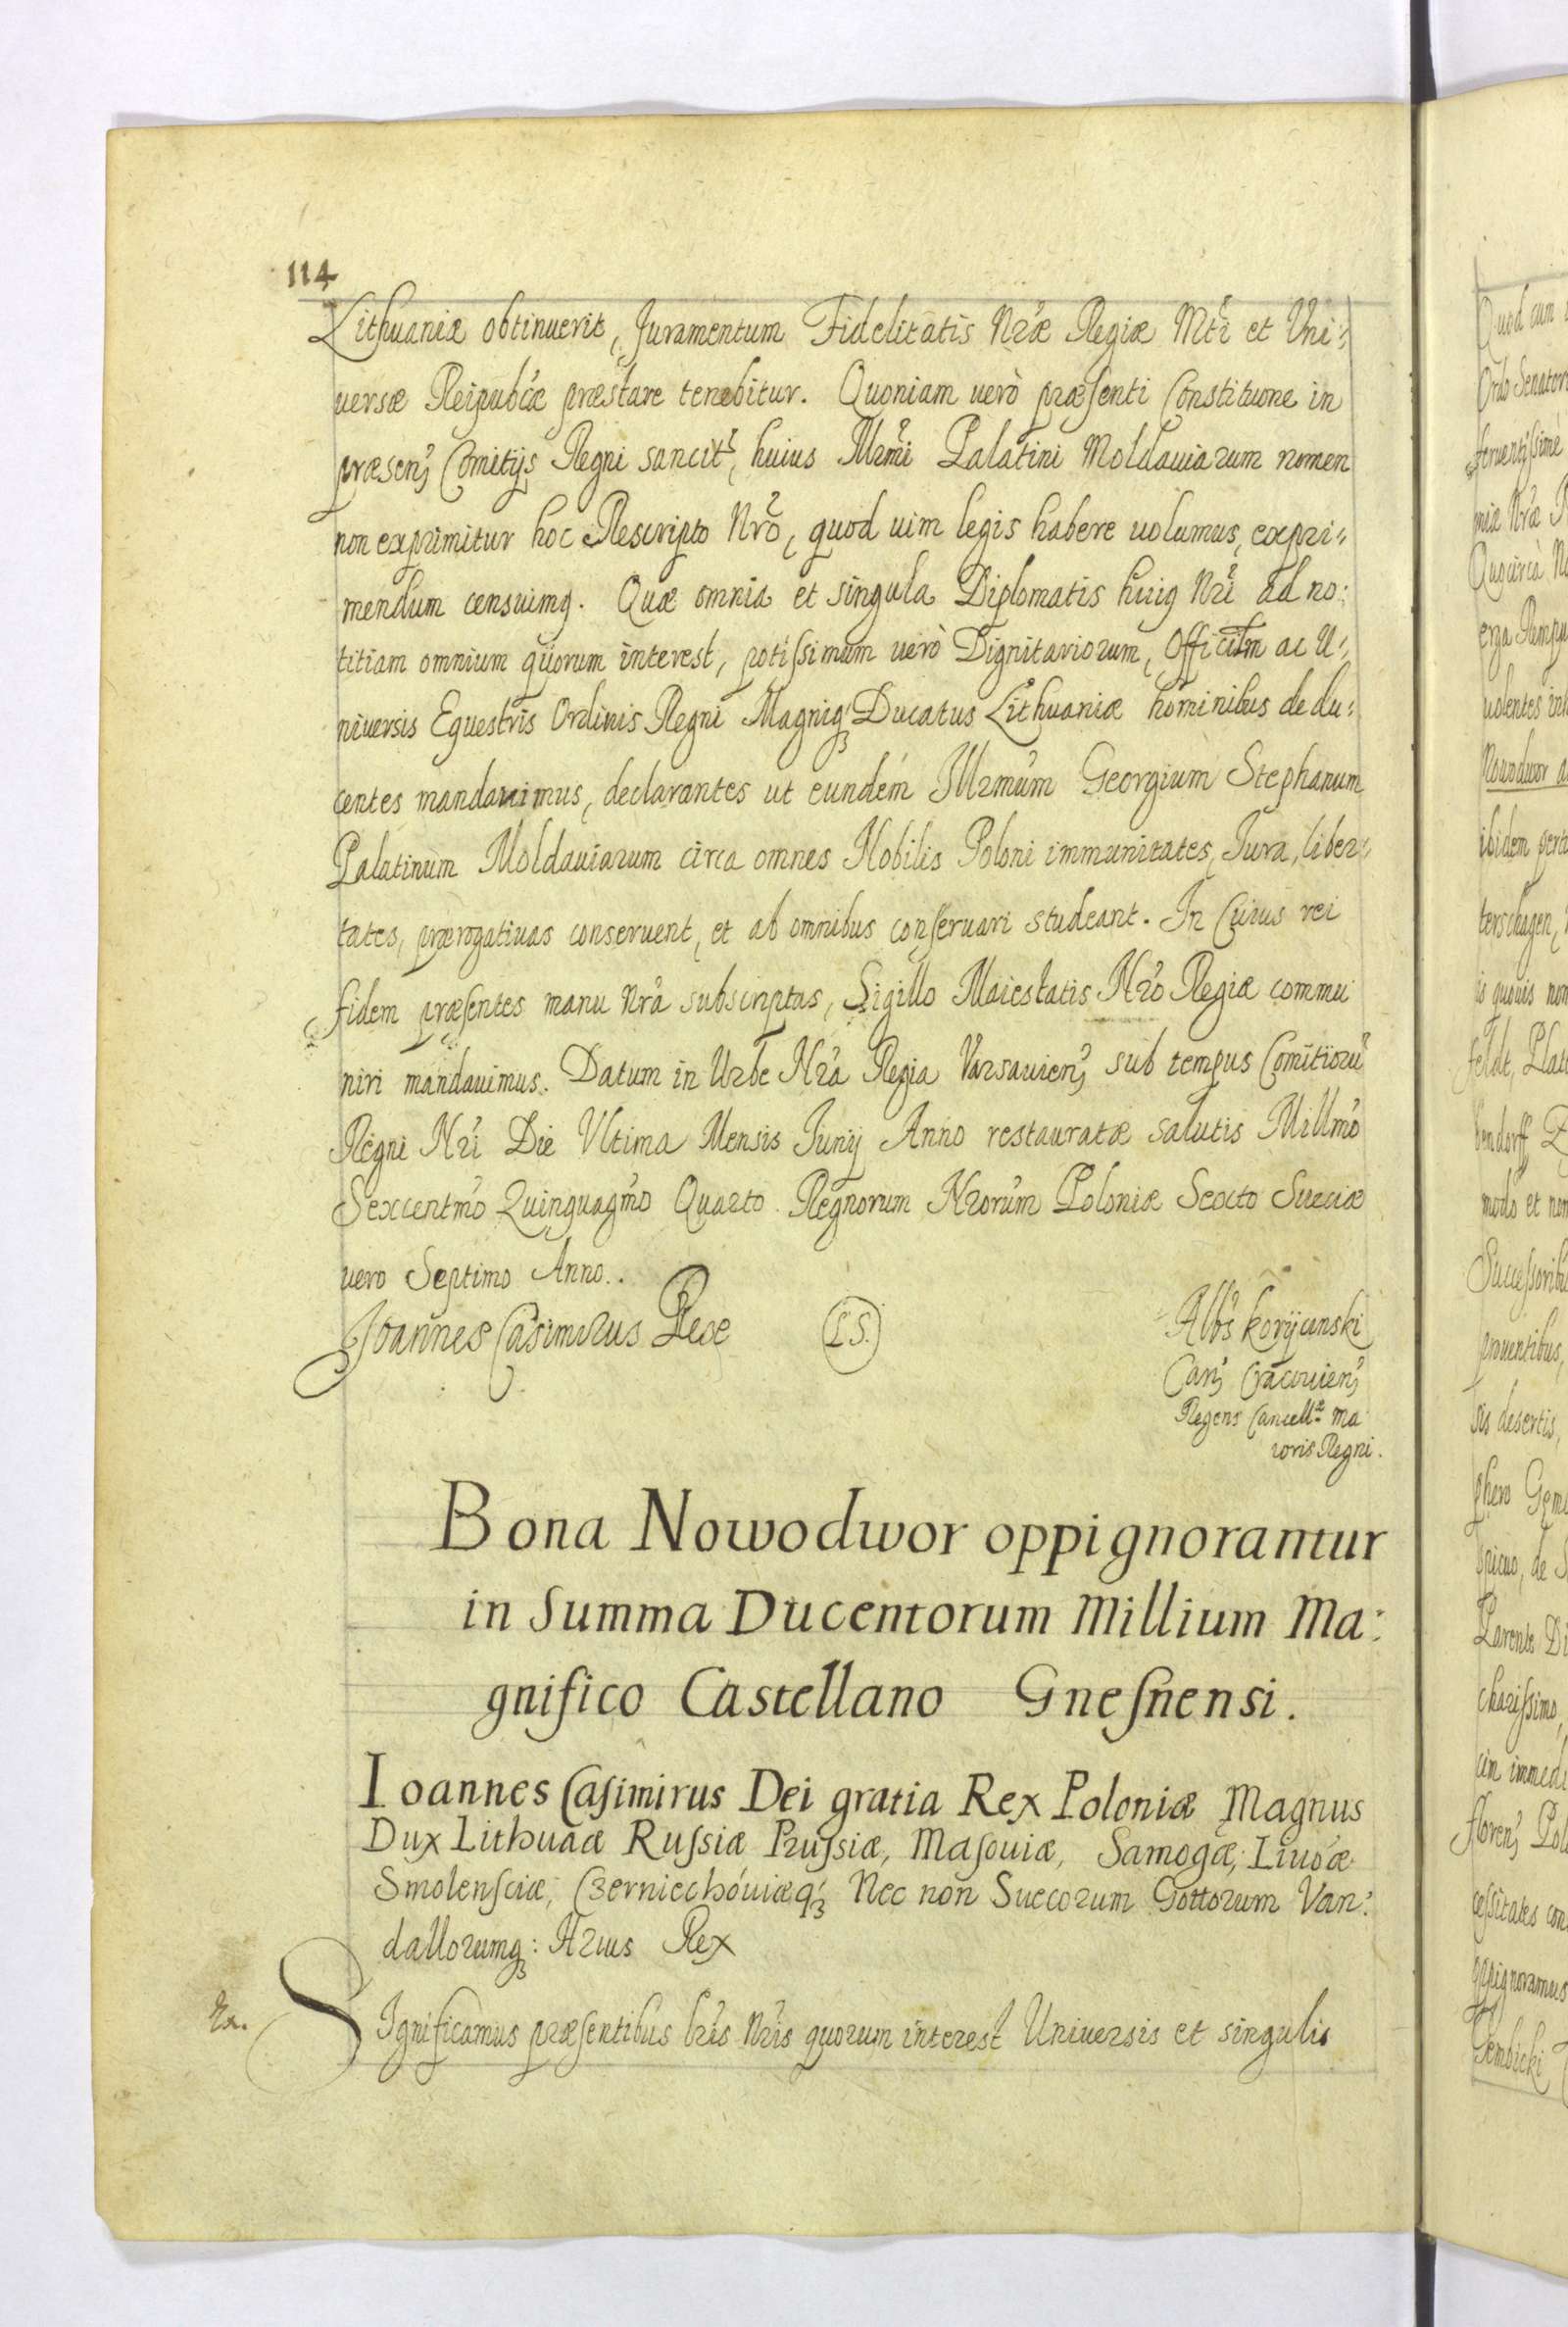 114
Lithuaniæ obtinuerit, Juramentum Fidelitatis Nræ Regiæ Mti et Uni⸗
uersæ Reipubcæ præstare tenebitur. Quoniam uerò præsenti Constitutione in
præsen; Comitijs Regni sancit, huius Illrmi Palatini Moldauiarum nomen
non exprimitur hoc Rescripto Nro, quod uim legis habere uolumus, expri⸗
mendum censuimq. Quæ omnia et singula Diplomatis huiq Nri ad no:
titiam omnium quorum interest, potissimum uerò Dignitariorum, Officialm ac U⸗
niuersis Equestris Ordinis Regni Magniq; Ducatus Lithuaniæ hominibus dedu⸗
centes mandauimus, declarantes ut eundem Illrmum Georgium Stephanum
Palatinum Moldauiarum circa omnes Nobilis Poloni immunitates, Jura, liber⸗
tates, prærogatiuas conseruent, et ab omnibus conseruari studeant. In Cuius rei
fidem præsentes manu Nra subscriptas, Sigillo Maiestatis Nrò Regiæ commu
niri mandauimus. Datum in Urbe Nra Regia Varsauien; sub tempus Comitioru
Regni Nri Die Vltima Mensis Junij Anno restauratæ salutis Millmo
Sexcentmo Quinquagmo Quarto Regnorum Nrorum Poloniæ Sexto Sueciæ
uero Septimo Anno..
Joannes Casimirus Rex
L.S.
Albs Korijcinski
Can; Cracouien;
Regens Cancellæ Ma
ioris Regni.
Bona Nowodwor oppignorantur
in Summa Ducentorum Millium Ma:
gnifico Castellano Gnesnensi.
Ioannes Casimirus Dei gratia Rex Poloniæ Magnus
Dux Lithuaæ Russiæ Prussiæ, Masouiæ, Samogæ, Liuoæ
Smolensciæ, Czerniechouiæq; Nec non Suecorum Gottorum Van:
dallorumq: Hrius Rex
Significamus præsentibus lris Nris quorum interest Uniuersis et singulis